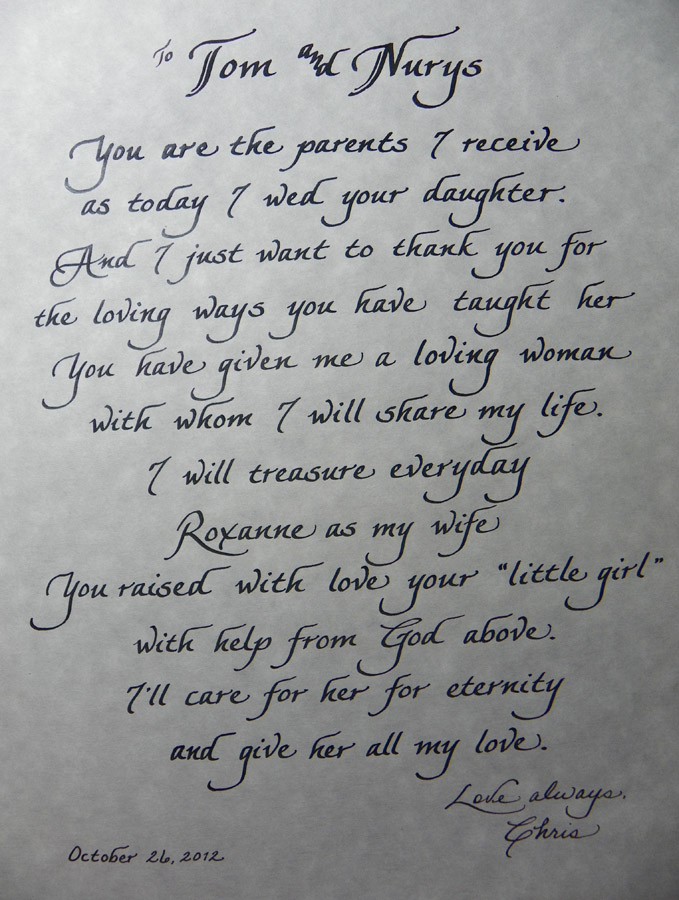 To Tom and Nurys
You are the parents I receive
as today I wed your daughter.
And I just want to thank you for
the loving ways you have taught her
You have given me a loving woman
with whom I will share my life.
I will treasure everyday
Roxanne as my wife
You raised with love your "little girl"
with help from God above.
I'll care for her for eternity
and give her all my love.
Love always.
Chris
October 26, 2012